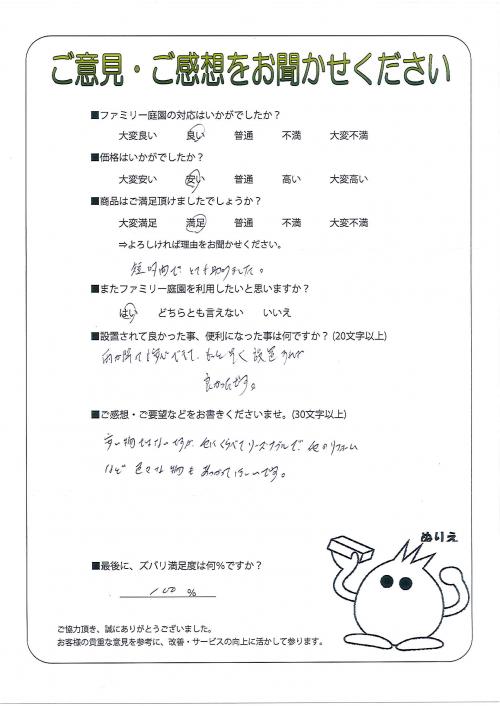 ご意見・ご感想をお聞かせください
■ファミリー庭園の対応はいかがでしたか？
大変良い 良い 普通 不満 大変不満
■価格はいかがでしたか？
大変安い 安い 普通 高い 大変高い
■商品はご満足頂けましたでしょうか？
大変満足 満足 普通 不満 大変不満
⇒よろしければ理由をお聞かせください。
短時間で とても助かりました。
■またファミリー庭園を利用したいと思いますか？
はい どちらとも言えない いいえ
■設置されて良かった事、便利になった事は何ですか？(20文字以上)
雨が降っても安心できて、もっと早く設置すれば
良かったです。
■ご感想・ご要望などをお書きくださいませ。(30文字以上)
安い物ではないですが、他にくらべてリーズナブルで、他のリフォーム
など 色々な物も あつかってほしいです。
ぬりえ
■最後に、ズバリ満足度は何％ですか？
100 %
ご協力頂き、誠にありがとうございました。
お客様の貴重な意見を参考に、改善・サービスの向上に活かして参ります。